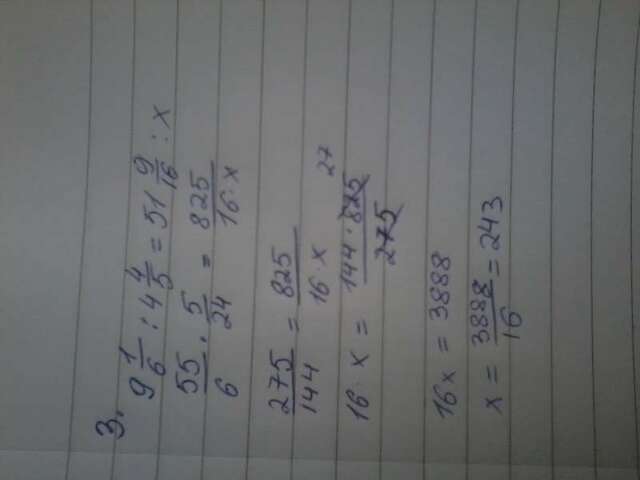 3.
9 1/6 : 4 4/5 = 51 9/16 : x
55/6 · 5/24 = 825/16·x
275/144 = 825/16·x
16·x = 144·825/275 27
16x = 3888
x = 3888/16 = 243